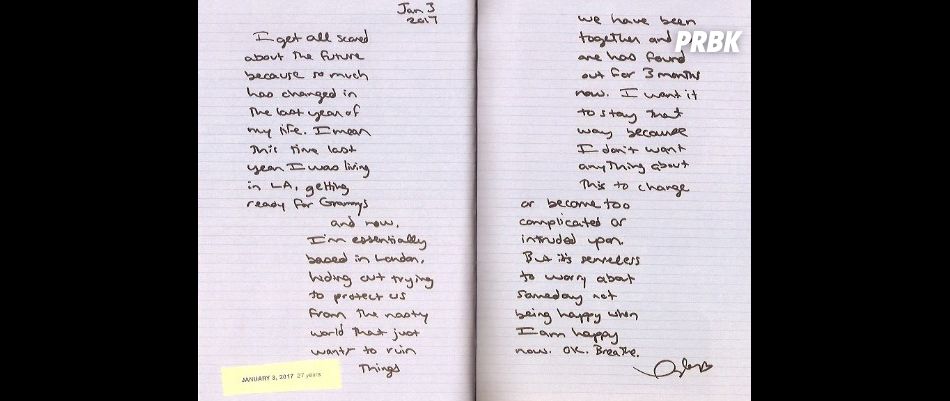 Jan 3
2017
I get all scared
about the future
because so much
has changed in
the last year of
my life. I mean
this time last
year I was living
in LA, getting
ready for Grammys
and now,
I'm essentially
based in London,
hiding out trying
to protect us
from the nasty
world that just
wants to ruin
things
JANUARY 3, 2017 27 years
we have been
together and
one has found
out for 3 months
now. I want it
to stay that
way because
I don't want
anything about
this to change
or become too
complicated or
intruded upon.
But it's senseless
to worry about
someday not
being happy when
I am happy
now. OK. Breathe.
PRBK